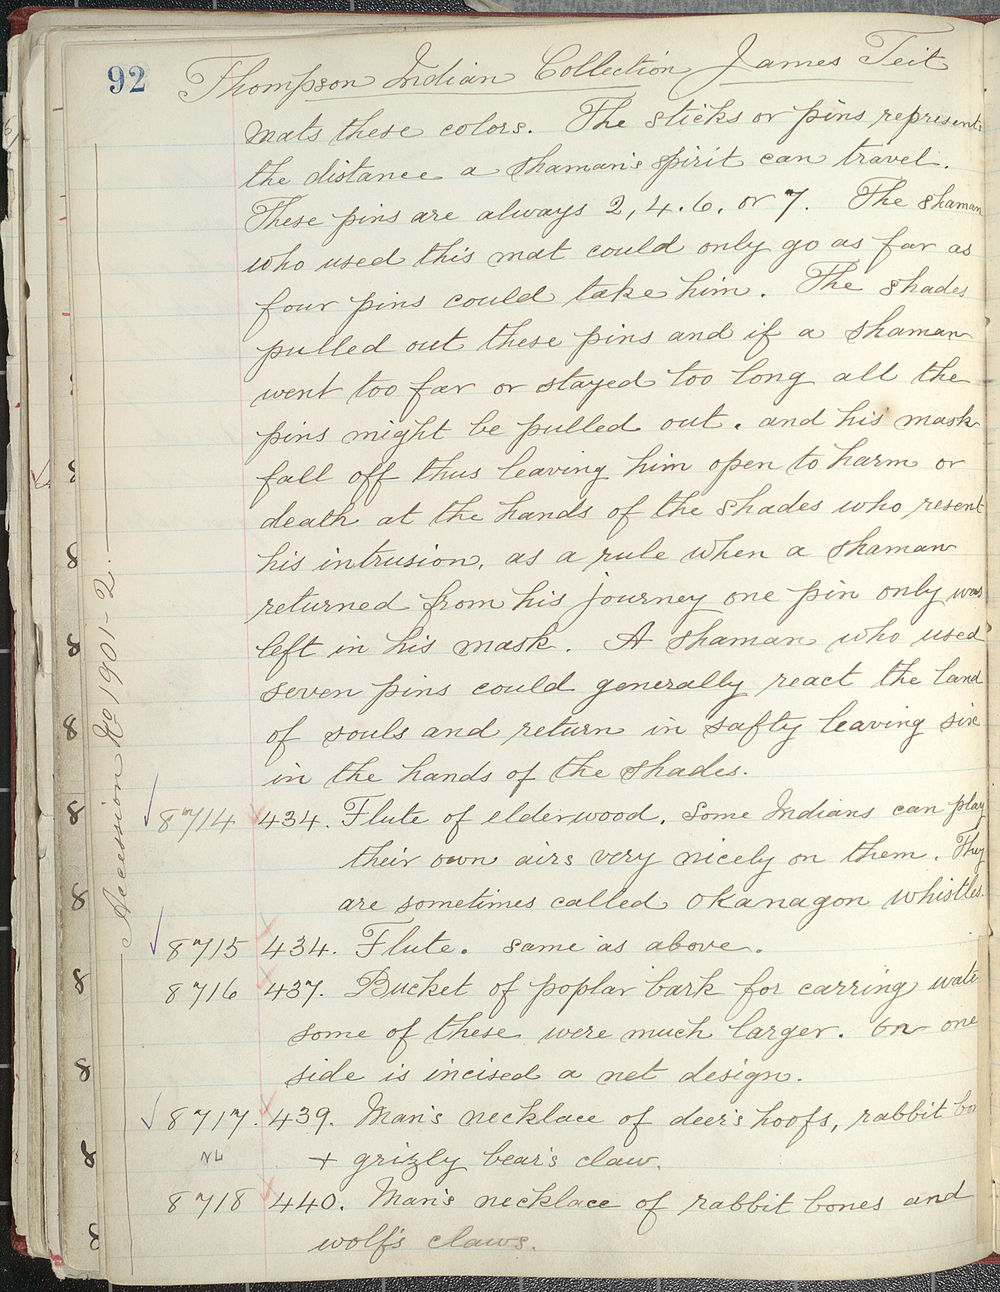 92 Thompson Indian Collection James Teit
mats these colors. The sticks or pins represents
the distance a shaman's spirit can travel.
These pins are always 2, 4. 6. or 7. The shaman
who used this mat could only go as far as
four pins could take him. The shades
pulled out these pins and if a shaman
went too far or stayed too long all the
pins might be pulled out. and his mask
fall off thus leaving him open to harm or
death at the hands of the shades who resent
his intrusion, as a rule when a shaman
returned from his journey one pin only was
left in his mask. A shaman who used
seven pins could generally react the land
of souls and return in safty leaving six
in the hands of the shades.
8714 434. Flute of elderwood. Some Indians can play
their own airs very nicely on them. They
are sometimes called Okanagon whistles.
8715 434. Flute. same as above.
8716 437. Bucket of poplar bark for carring
some of these were much larger. On one
side is incised a net design.
8717. 439. Man's necklace of deer's hoofs, rabbit
NL + grizly bear's claw.
8718 440. Man's necklace of rabbit bones and
wolf's claws.
Accession No 1901-2.
8
8
8
8
8
8
8
8
8
8